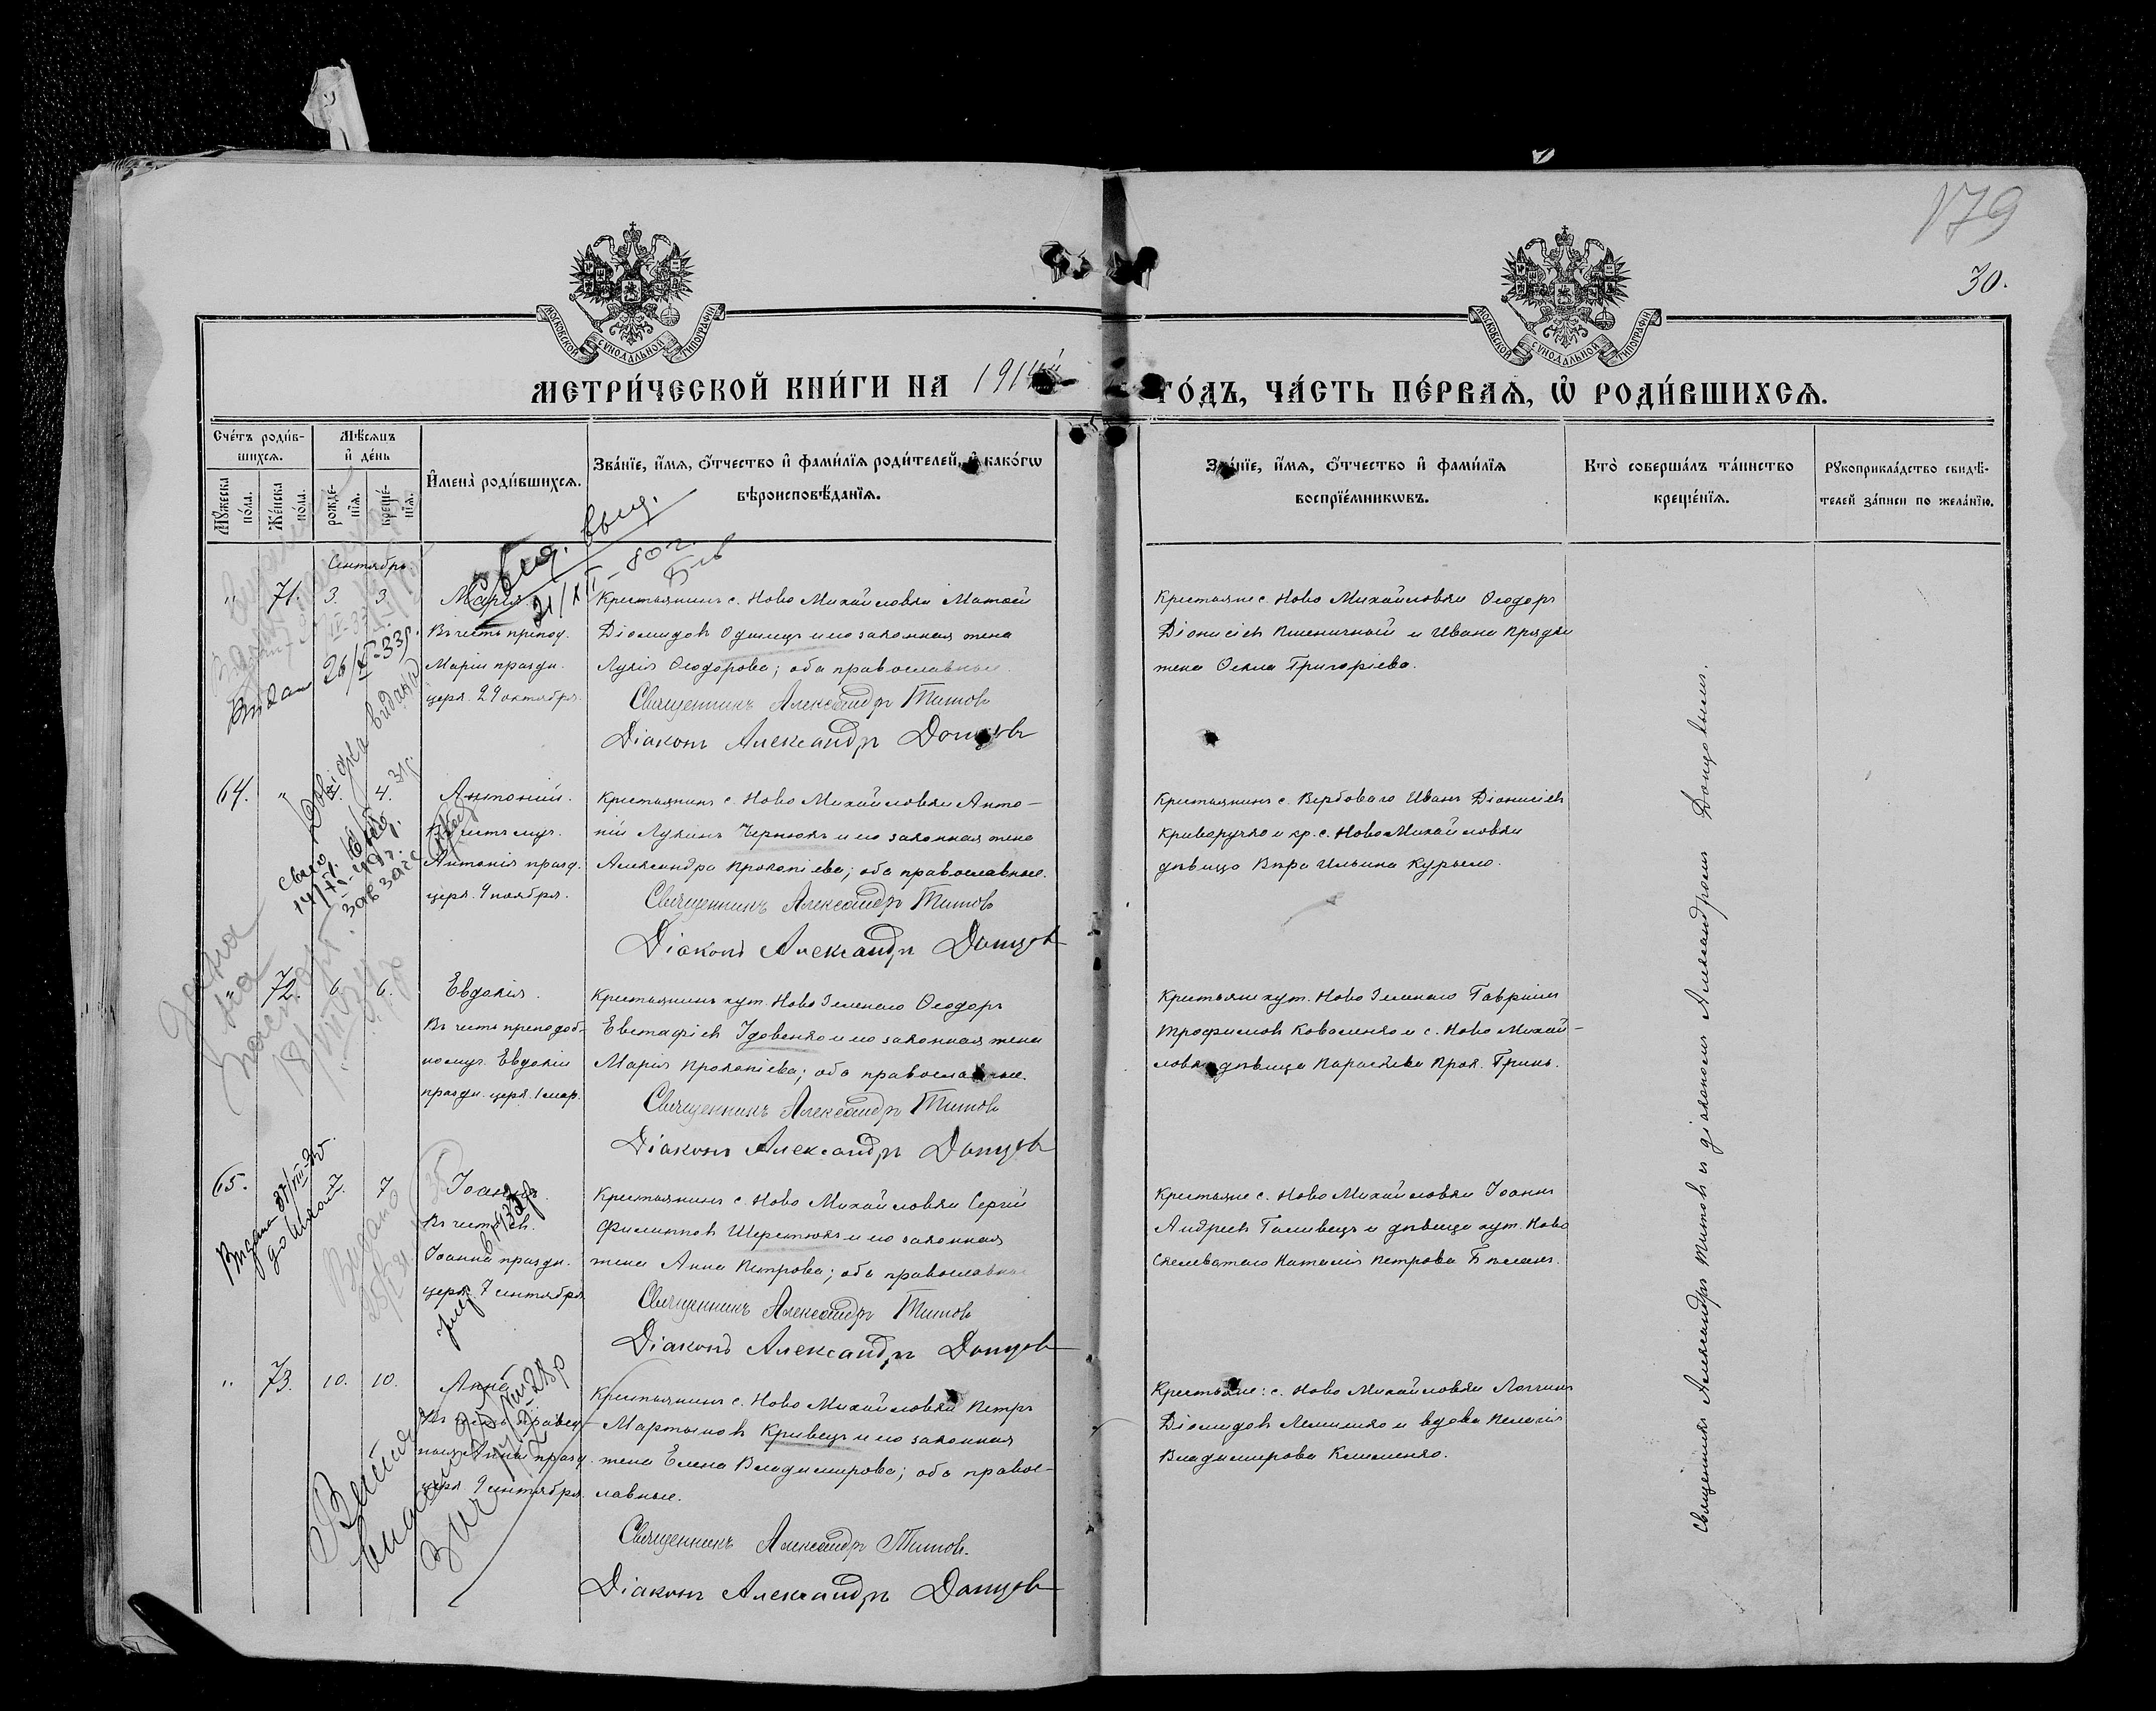 179
30.
МОСКОВСКОЙ СУНОДАЛЬНОЙ ТИПОГРАФІИ
МОСКОВСКОЙ СУНОДАЛЬНОЙ ТИПОГРАФІИ
МЕТРИ́ЧЕСКОЙ КНИ́ГИ НА 1914 ГО́ДЪ, ЧА́СТЬ ПЕ́РВАѦ, Ѽ РОДИ́ВШИХСѦ.
Сче́тъ роди́в-
шихсѧ.
Мѣ́сѧцъ
и҆ де́нь
Мꙋ́жеска по́ла.
Же́нска по́ла.
рожде́-
нїѧ.
креще́-
нїѧ.
И҆мена̀ роди́вшихсѧ.
Зва́нїе, и҆́мѧ, ѻ҆́тчество и҆ фами́лїѧ роди́телей, и҆ како́гѡ
вѣроисповѣ́данїѧ.
Зва́нїе, и҆́мѧ, ѻ҆́тчество и҆ фами́лїѧ
воспрїе́мникѡвъ.
Кто̀ соверша́лъ та́инство
креще́нїѧ.
Рꙋкоприкла́дство свидѣ́-
телей за́писи по жела́нїю.
Сентябрь.
" 71. 3. 3. Марія.
Въ честь препод.
Маріи праздн.
церк. 29 октября.
Крестьянинъ с. Ново Михайловки Матѳей
Діомидовъ Одинецъ и его законная жена
Лукія Ѳеодорова; оба православные.
Священникъ Александръ Титовъ
Діаконъ Александръ Донцовъ
Крестьяне с. Ново Михайловки Ѳеодоръ
Діонисіевъ Пшеничный и Ивана Прядки
жена Ѳекла Григоріева.
64. " 4. Антоній.
Въ честь муч.
Антонія празд.
церк. 9 ноября.
Крестьянинъ с. Ново Михайловки Анто-
ній Лукинъ Чернюкъ и его законная жена
Александра Прокопіева; оба православные.
Священникъ Александръ Титовъ
Діаконъ Александръ Донцовъ
Крестьянинъ с. Вербоваго Иванъ Діонисіевъ
Криворучко и кр. с. Ново Михайловки
дѣвица Вѣра Ильина Курило.
" 72. 6. 6. Евдокія.
Въ честь преподоб-
номуч. Евдокіи
праздн. церк. 1 мар.
Крестьянинъ хут. Ново Зеленаго Ѳеодоръ
Евстафіевъ Удовенко и его законная жена
Марія Прокопіева; оба православные.
Священникъ Александръ Титовъ
Діаконъ Александръ Донцовъ
Крестьяне хут. Ново Зеленаго Гавріилъ
Трофимовъ Коваленко и с. Ново Михай-
ловки дѣвица Параскева Прок. Гринь.
65. 7. 7 Іоаннъ.
Въ честь св.
Іоанна праздн.
церк. 7 сентября
Крестьянинъ с. Ново Михайловки Сергій
Филипповъ Шерстюкъ и его законная
жена Анна Петрова; оба православные
Священникъ Александръ Титовъ
Діаконъ Александръ Донцовъ
Крестьяне с. Ново Михайловки Іоаннъ
Андреевъ Галивецъ и дѣвица хут. Ново
Скелеватаго Наталія Петрова Бѣланъ.
" 73. 10. 10. Анна
Въ честь правед-
ныя Анны празд.
церк. 9 сентября.
Крестьянинъ с. Ново Михайловки Петръ
Мартыновъ Кривецъ и его законная
жена Елена Владимирова; оба правос-
лавные.
Священникъ Александръ Титовъ.
Діаконъ Александръ Донцовъ
Крестьяне: с. Ново Михайловки Логгинъ
Діомидовъ Лемешко и вдова Пелагія
Владимирова Клименко.
Священникъ Александръ Титовъ съ діакономъ Александромъ Донцовымъ.